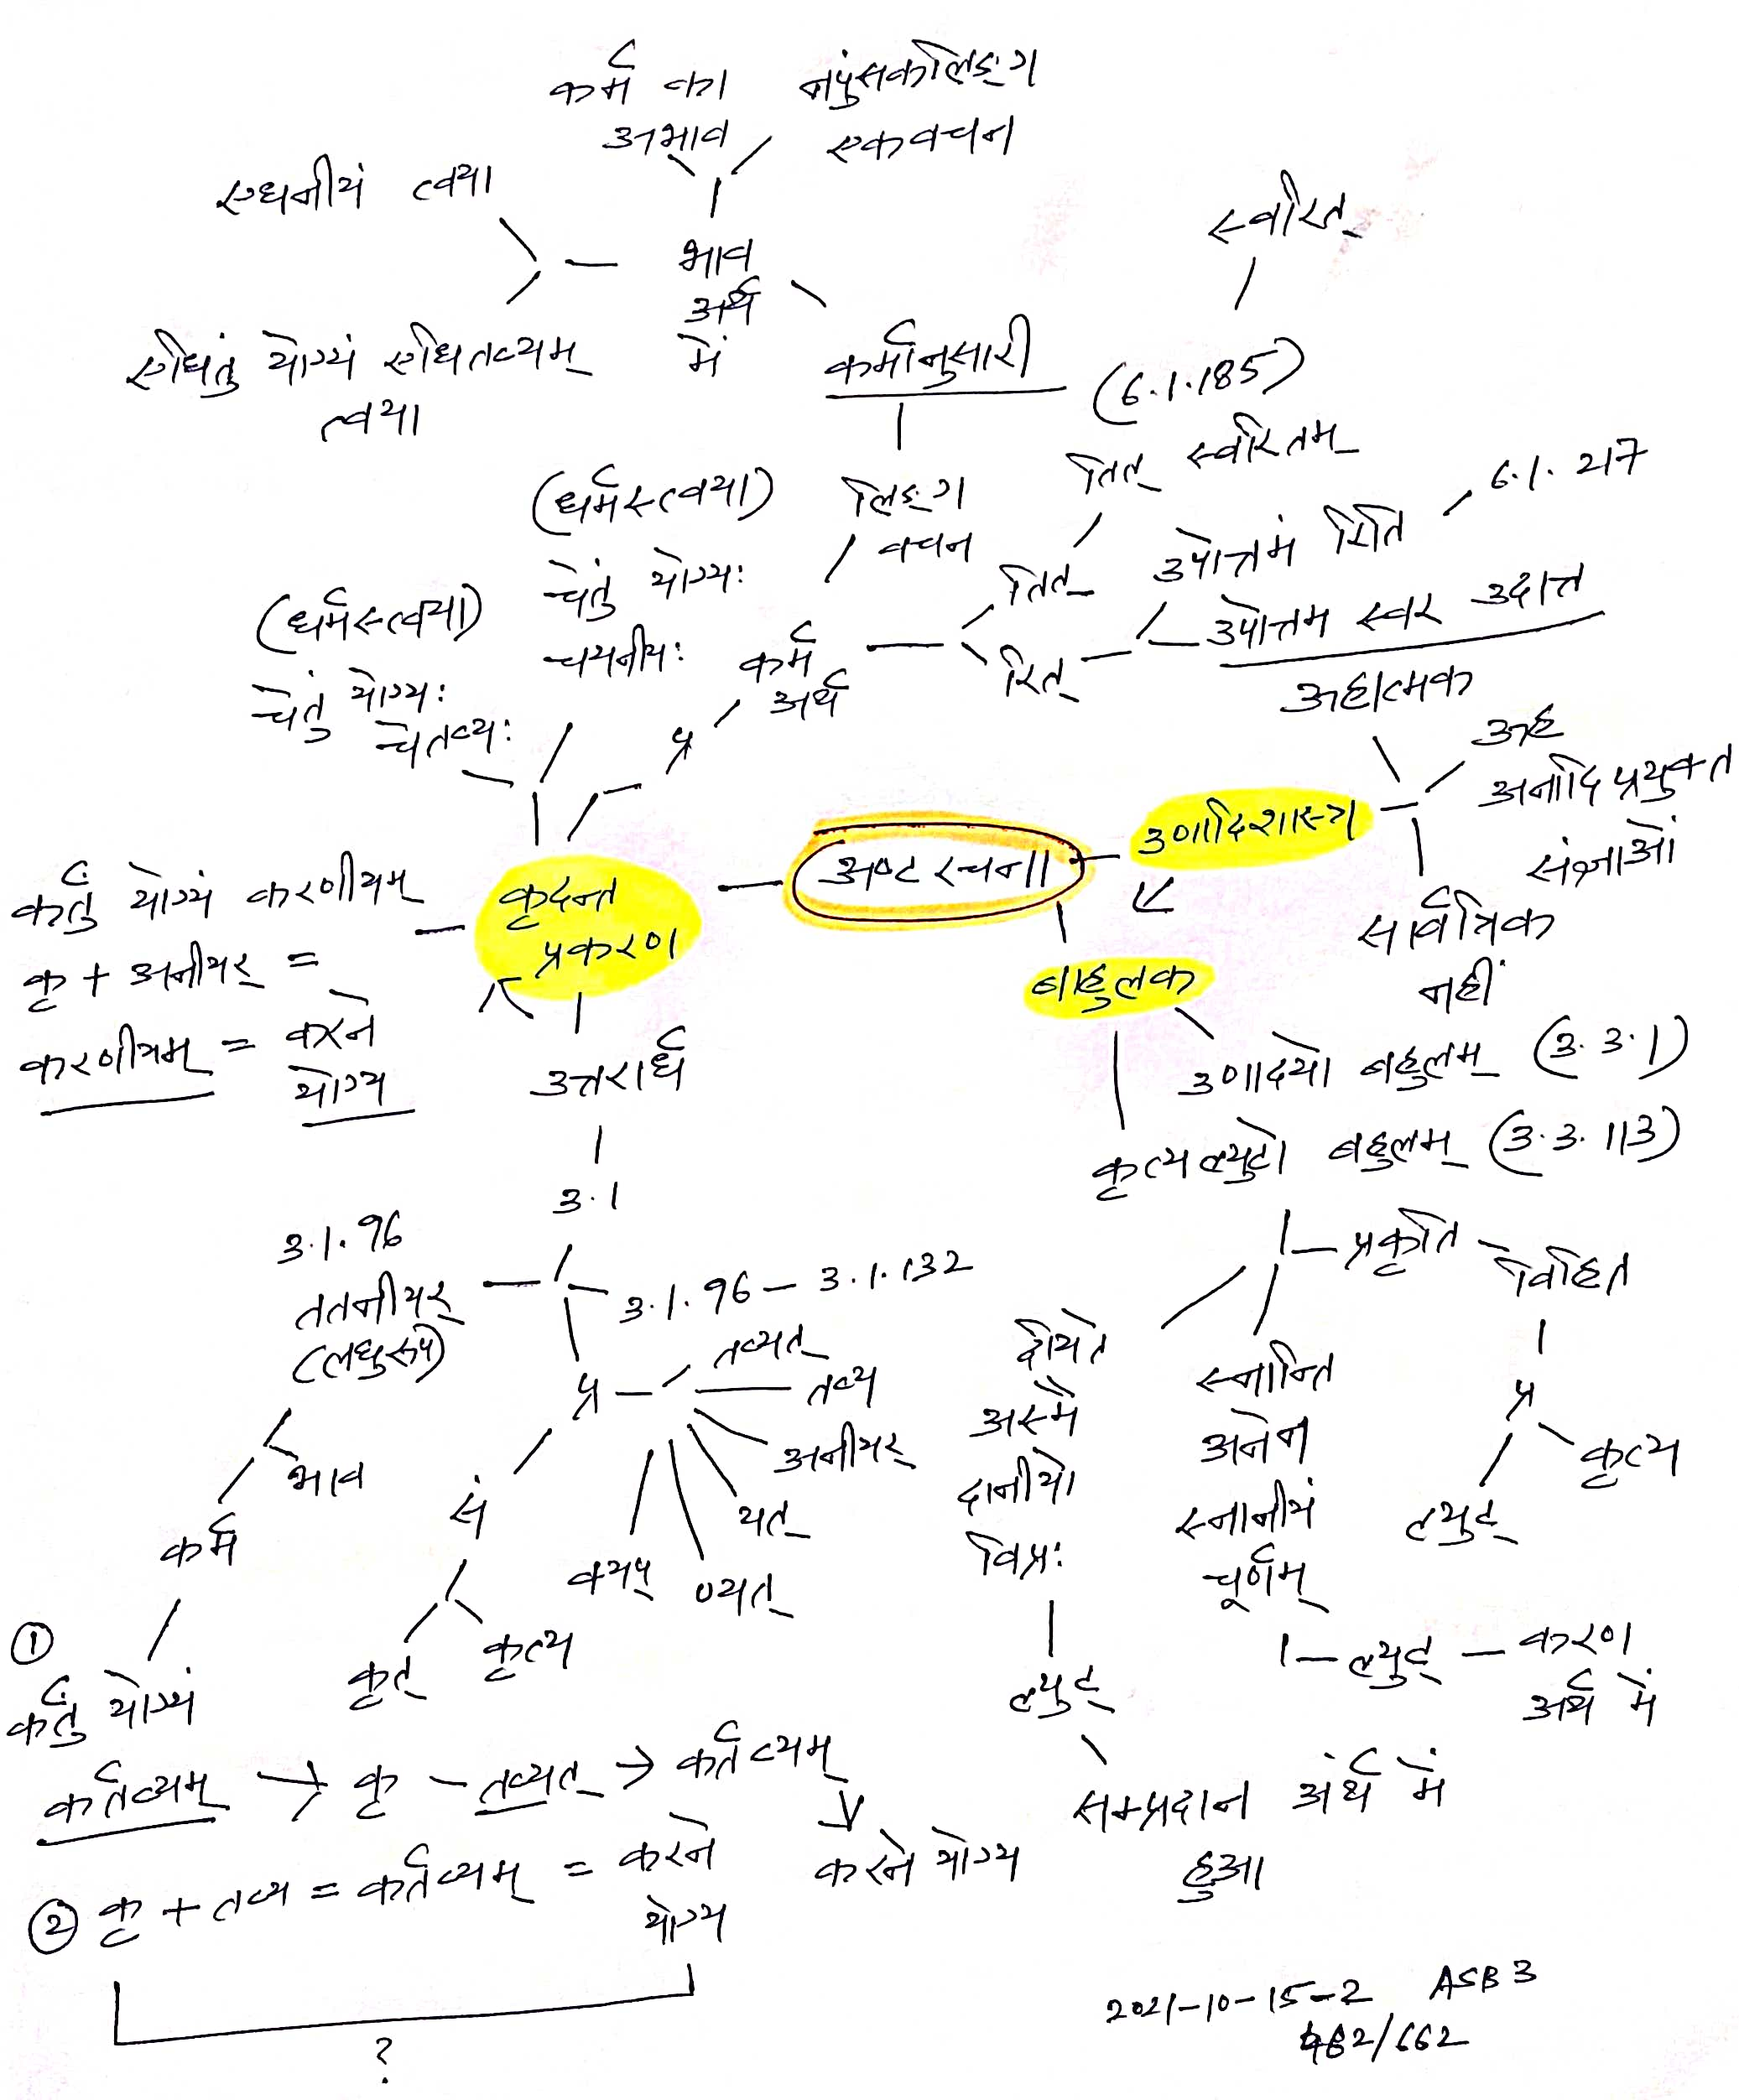 कर्म का
अभाव
नपुंसकलिङ्ग
एकवचन
एधनीयं त्वया
भाव
अर्थ
में
एधितुं योग्यं एधितव्यम्
त्वया
कर्मानुसारी
लिङ्ग
वचन
स्वरित्
(6.1.185)
तित् स्वरितम्
तित्
रित्
6.1.217
उपोत्तमं रिति
उपोत्तम स्वर उदात्त
(धर्मस्त्वया)
चेतुं योग्यः
चयनीयः
(धर्मस्त्वया)
चेतुं योग्यः
चेतव्यः
प्र
कर्म
अर्थ
ऊहात्मक
ऊह
अनादि प्रयुक्त
संज्ञाओं
सार्वत्रिक
नहीं
उणादिशास्त्र
अष्ट रचना
कृदन्त
प्रकरण
बाहुलक
कर्तुं योग्यं करणीयम्
कृ + अनीयर् =
करणीयम् = करने
योग्य
उत्तरार्ध
3.1
उणादयो बहुलम् (3.3.1)
कृत्यल्युटो बहुलम् (3.3.113)
3.1.96
ततनीयर्
(लघुरूप)
3.1.96 – 3.1.132
प्र
तव्यत्
तव्य
अनीयर्
यत्
ण्यत्
क्यप्
सं
कृत्
कृत्य
भाव
कर्म
प्रकृति
विहित
प्र
कृत्य
ल्युट्
दीयते
अस्मै
दानीयो
विप्रः
ल्युट्
सम्प्रदान अर्थ में
हुआ
स्नान्ति
अनेन
स्नानीयं
चूर्णम्
ल्युट् – करण
अर्थ में
①
कर्तुं योग्यं
कर्तव्यम् → कृ – तव्यत् → कर्तव्यम्
करने योग्य
② कृ + तव्य = कर्तव्यम् = करने
योग्य
?
2021-10-15-2 ASB3
482/662